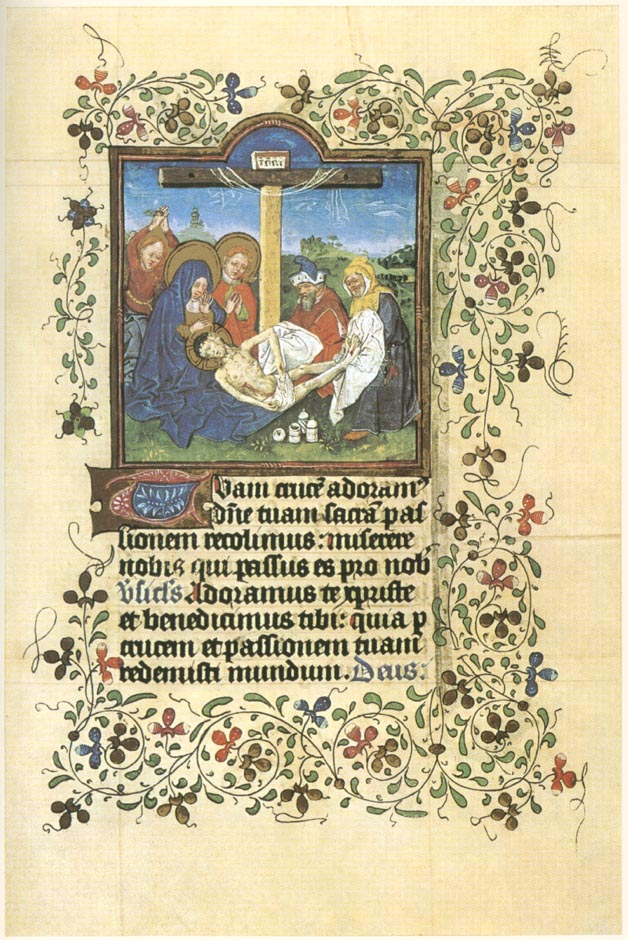 Tuam crucē adoramꝰ
dn̄e tuam sacrā pas
sionem recolimus : miserere
nobis qui passus es pro nobꝭ
Vsicl̄s Adoramus te xpriste
et benedicimus tibi : quia p
crucem et passionem tuam
redemisti mundum . Deus :